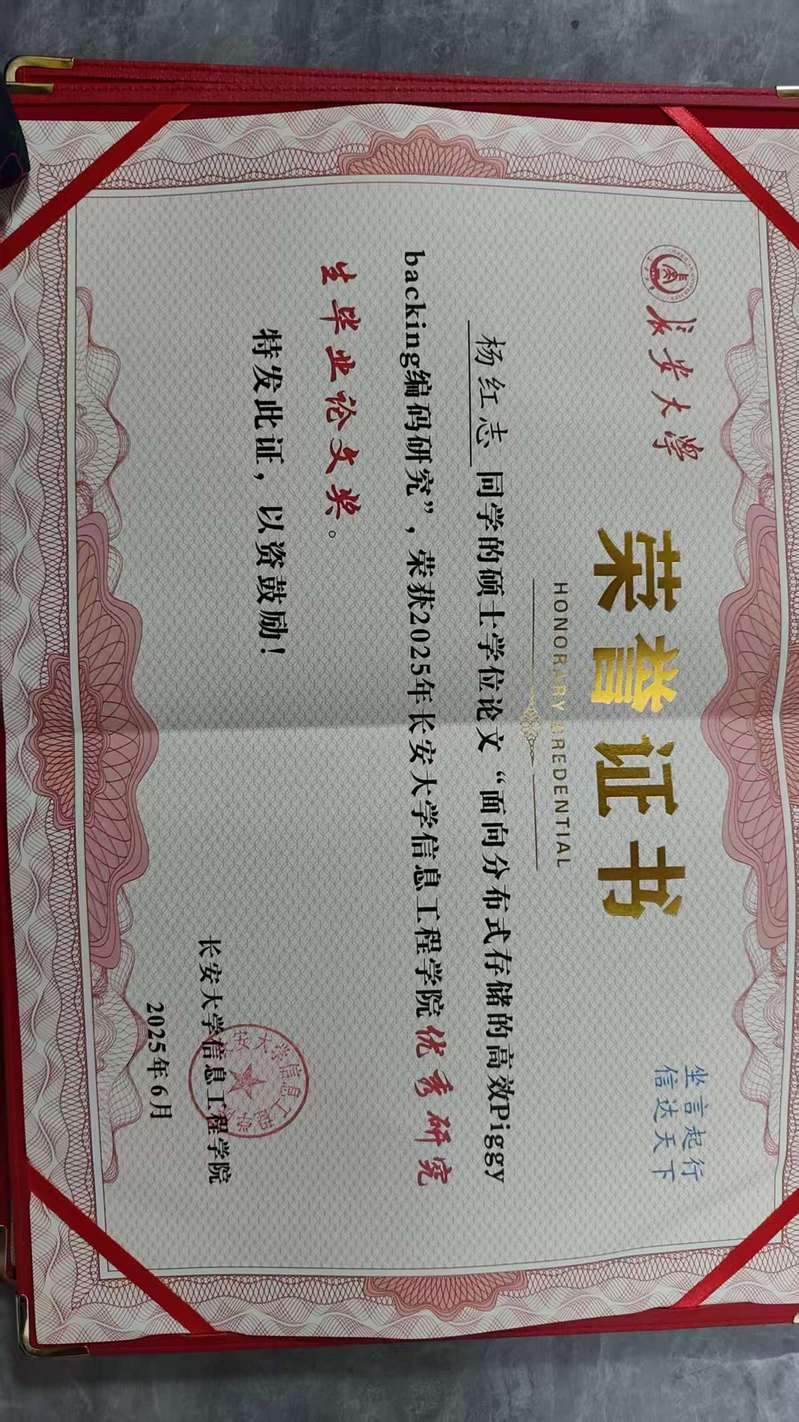 长安大学
坐言起行
信达天下
荣誉证书
HONORARY CREDENTIAL
杨红志 同学的硕士学位论文“面向分布式存储的高效Piggy
backing编码研究”，荣获2025年长安大学信息工程学院优秀研究
生毕业论文奖。
特发此证，以资鼓励！
长安大学信息工程学院
2025年6月